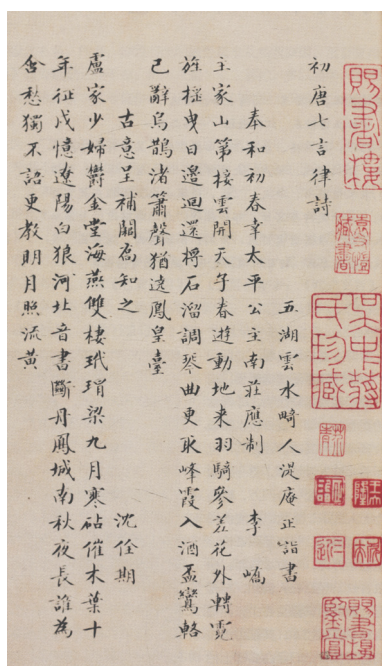 賜書樓
吳中蔣氏珍藏
初唐七言律詩
五湖雲水畸人湜庵正詣書
奉和初春幸太平公主南莊應制 李嶠
主家山第接雲開天子春遊動地来羽騎參差花外轉霓
旌搖曳日邊迴還將石溜調琴曲更取峰霞入酒盃鸞輅
已辭烏鵲渚簫聲猶遠鳳皇臺
古意呈補闕喬知之 沈佺期
盧家少婦鬱金堂海燕雙棲玳瑁梁九月寒砧催木葉十
年征戍憶遼陽白狼河北音書斷丹鳳城南秋夜長誰為
含愁獨不詔更教明月照流黃